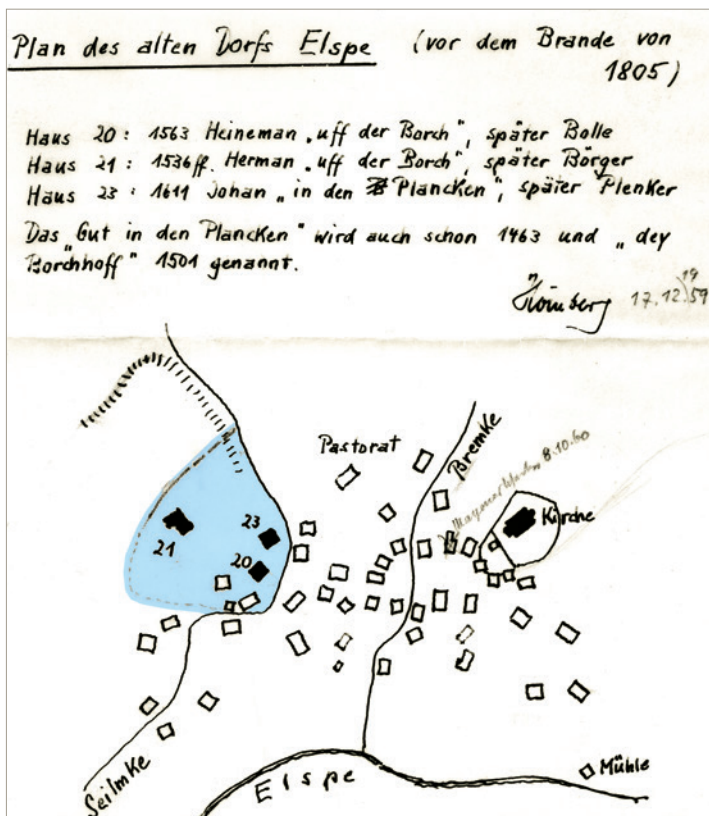 Plan des alten Dorfs Elspe (vor dem Brande von
1805)
Haus 20: 1563 Heineman „uff der Borch", später Bolle
Haus 21: 1536ff. Herman „uff der Borch", später Börger
Haus 23: 1611 Johan „in den Plancken", später Plenker
Das „Gut in den Plancken" wird auch schon 1463 und „dey
Borchhoff" 1501 genannt.
Hömberg 17.12.1959
Pastorat
Bremke
8.10.60
Kirche
21
23
20
Seilmke
Elspe
Mühle